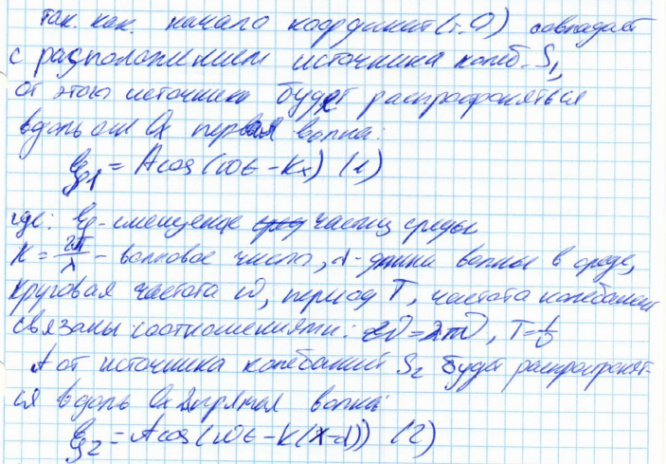 так. как. начало координат (т.О) совпадает
с расположением источника колеб. S₁,
от этого источника будет распространяться
вдоль оси Ox первая волна:
ξ₁ = A cos (ωt - kx) (1)
где: ξ - смещение частиц среды
K = 2π/λ - волновое число, λ - длина волны в среде,
круговая частота ω, период T, частота колебаний
связаны соотношениями: ω = 2πν, T = 1/ν
А от источника колебаний S₂ будет распространят-
ся вдоль Ox прямая волна:
ξ₂ = A cos (ωt - k(x-d)) (2)